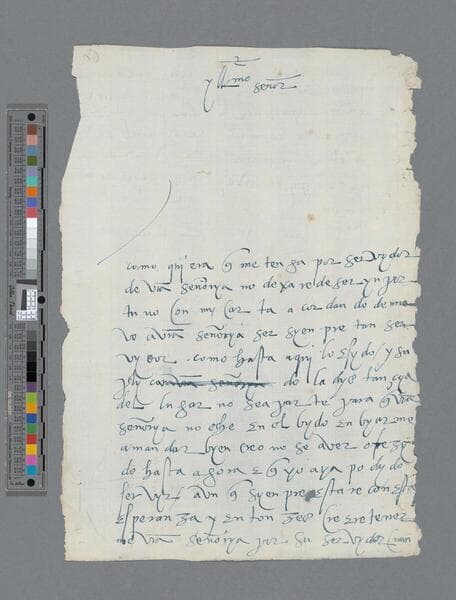 yllmo señor
como qujera q me tenga por servydor
de vra señorya no dexare de ser ynpor
tuno con my carta acordando de nue
vo a vra señorya ser syenpre tan ser
vydor como hasta aqui lo e sydo y su
do la dystançya
del lugar no sea parte para q vra
señorya no eche en olbydo enbyarme
a mandar byen creo no se aver ofreçy
do hasta agora en q yo aya podydo
servyr aun q syenpre estare con esta
esperança y entonçes creere tener
me vra señorya por su servydor